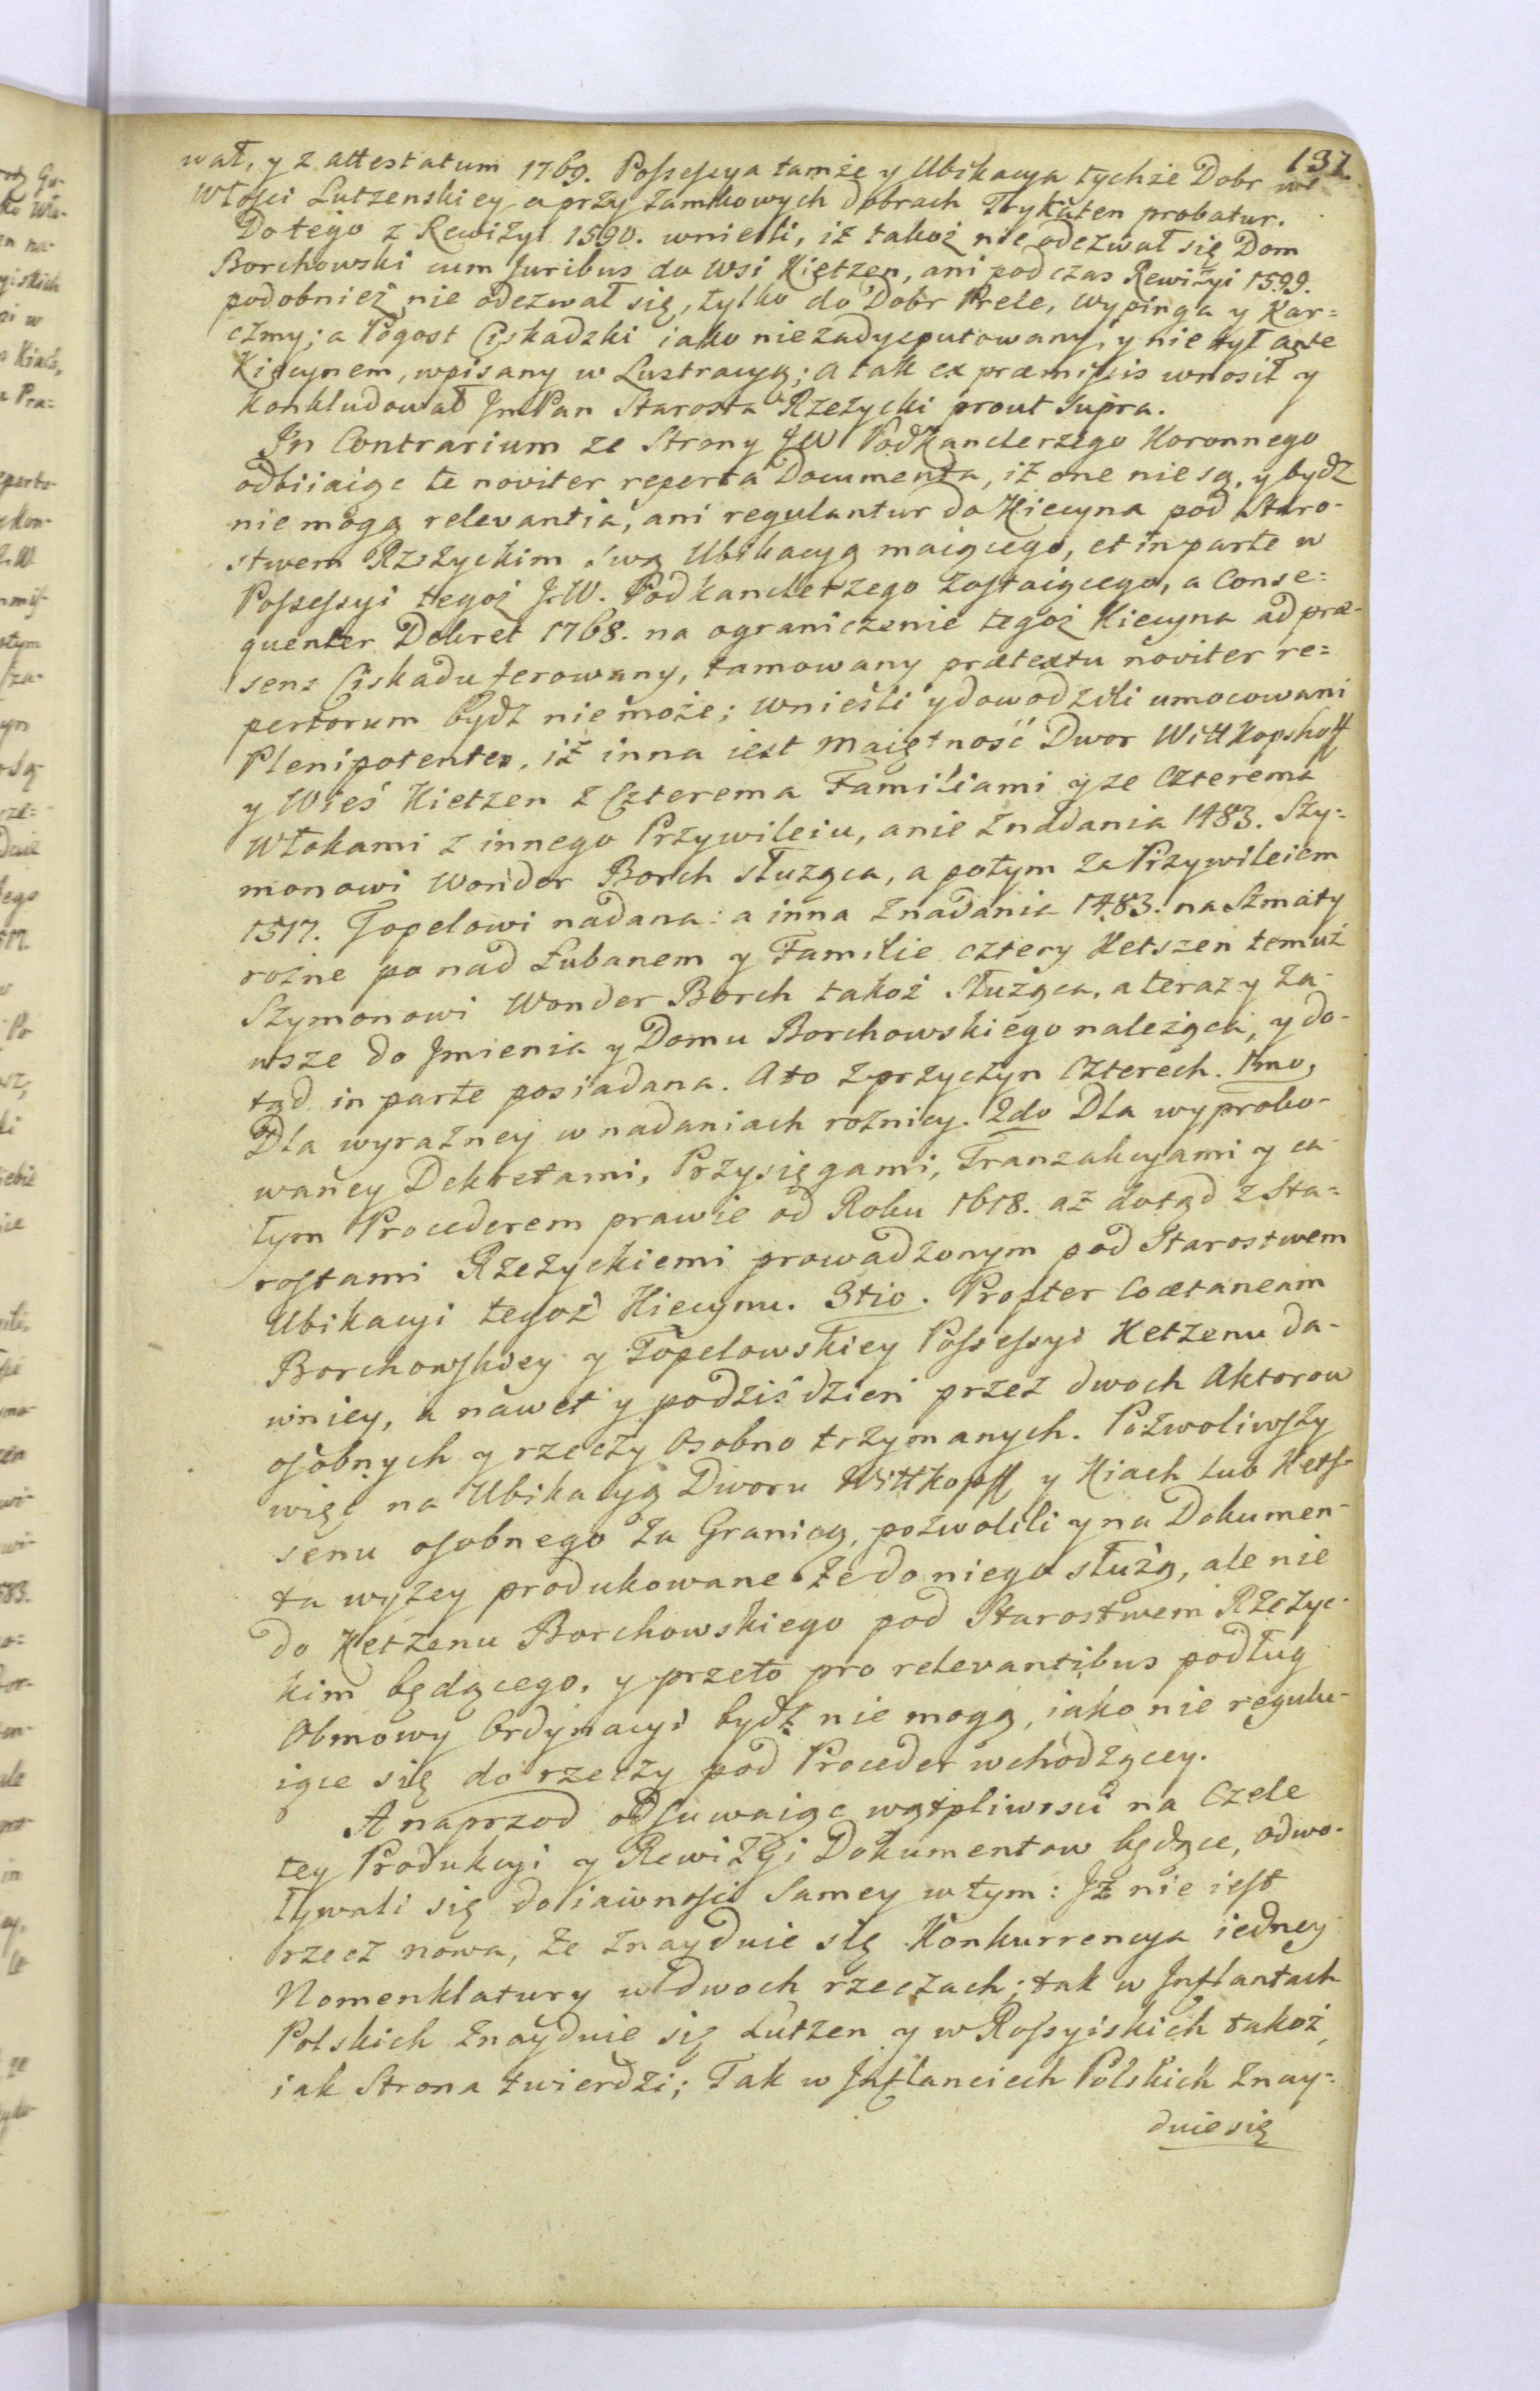 137
wał, y z attestatum 1769. Possessya tamże y Ubikacya tychże Dobr we
Włości Lutzenskiey a przy Zamkowych dobrach Trykaten probatur.
Do tego z Rewizyi 1590. wnieśli, iż takoż nie odezwał się Dom
Borchowski cum Juribus do Wsi Kietzen, ani podczas Rewizyi 1599.
podobnież nie odezwał się, tylko do Dobr Prele, Wypinga y Kar=
czmy; a Pogost Ciskadzki iako niezadysputowany, y nie był
Kiecynem, wpisany w Lustracyą; a tak ex praemissis wnosił y
Konkludował JmPan Starosta Rzeżycki prout Supra.
In Contrarium ze Strony JW Podkanclerzego Koronnego
odbiiaiąc te noviter reperta Documenta, iż one nie są, y bydz
nie mogą relevantia, ani regulantur do Kiecyna pod Staro-
stwem Rzeżyckim swą Ubikacyą maiącego, et in parte w
Possessyi tegoż J.W. Podkanclerzego zostaiącego, a Conse=
quenter Dekret 1768. na ograniczenie tegoż Kiecyna ad præ-
sens Ciskadu ferowany, tamowany prætextu noviter re=
pertorum bydz nie może; wnieśli y dowodzili umocowani
Plenipotente, iż inna iest Maiętność Dwor Wittkopshoff
y Wieś Kietzen z Czterema Familiami y ze Czterema
Włokami z innego Przywileiu, a nie z nadania 1483. Szy=
monowi Wonder Borch służąca, a potym za Przywileiem
1517. Topelowi nadana: a inna z nadania 1483. na Szmaty
rożne ponad Łubanem y Familie cztery Ketszen temuż
Szymonowi Wonder Borch takoż służąca, a teraz y za-
wsze do Jmienia y Domu Borchowskiego należąca, y do-
tąd in parte posiadana. A to z przyczyn Czterech. 1mo,
Dla wyrazney w nadaniach rożnicy. 2do Dla wyprobo-
waney Dekretami, Przysięgami, Tranzakcyami y ca-
łym Procederem prawie od Roku 1618. aż dotąd z Sta=
rostami Rzeżyckiemi prowadzonym pod Starostwem
Ubikacyi tegoż Kiecynu. 3tio. Propter Coætaneam
Borchowskiey y Topelowskiey Possessyi Ketzenu da-
wniey, a nawet y podziś dzień przez dwoch Aktorow
osobnych y rzeczy Osobno trzymanych. Pozwoliwszy
więc na Ubikacyą Dworu Wittkopff y Kiach lub Kets-
senu osobnego za Granicą, pozwolili y na Dokumen-
ta wyżey produkowane że do niego służą, ale nie
do Ketzenu Borchowskiego pod Starostwem Rzeżyc-
kim będącego, y przeto pro relevantibus podług
Obmowy Ordynacyi bydz nie mogą, iako nie regulu-
iące się do rzeczy pod Proceder wchodzącey.
A naprzod odsuwaiąc wątpliwości na Czele
tey Produkcyi y Rewizyi Dokumentow będące, odwo-
ływali się do iawności Samey w tym: Jż nie iest
rzecz nowa, że znayduie się Konkurrencya iedney
Nomenklatury w dwoch rzeczach; tak w Jnflantach
Polskich znayduie się Lutzen y w Rossyiskich takoż,
iak Strona twierdzi; Tak w Jnflanciech Polskich Znay=
duie się